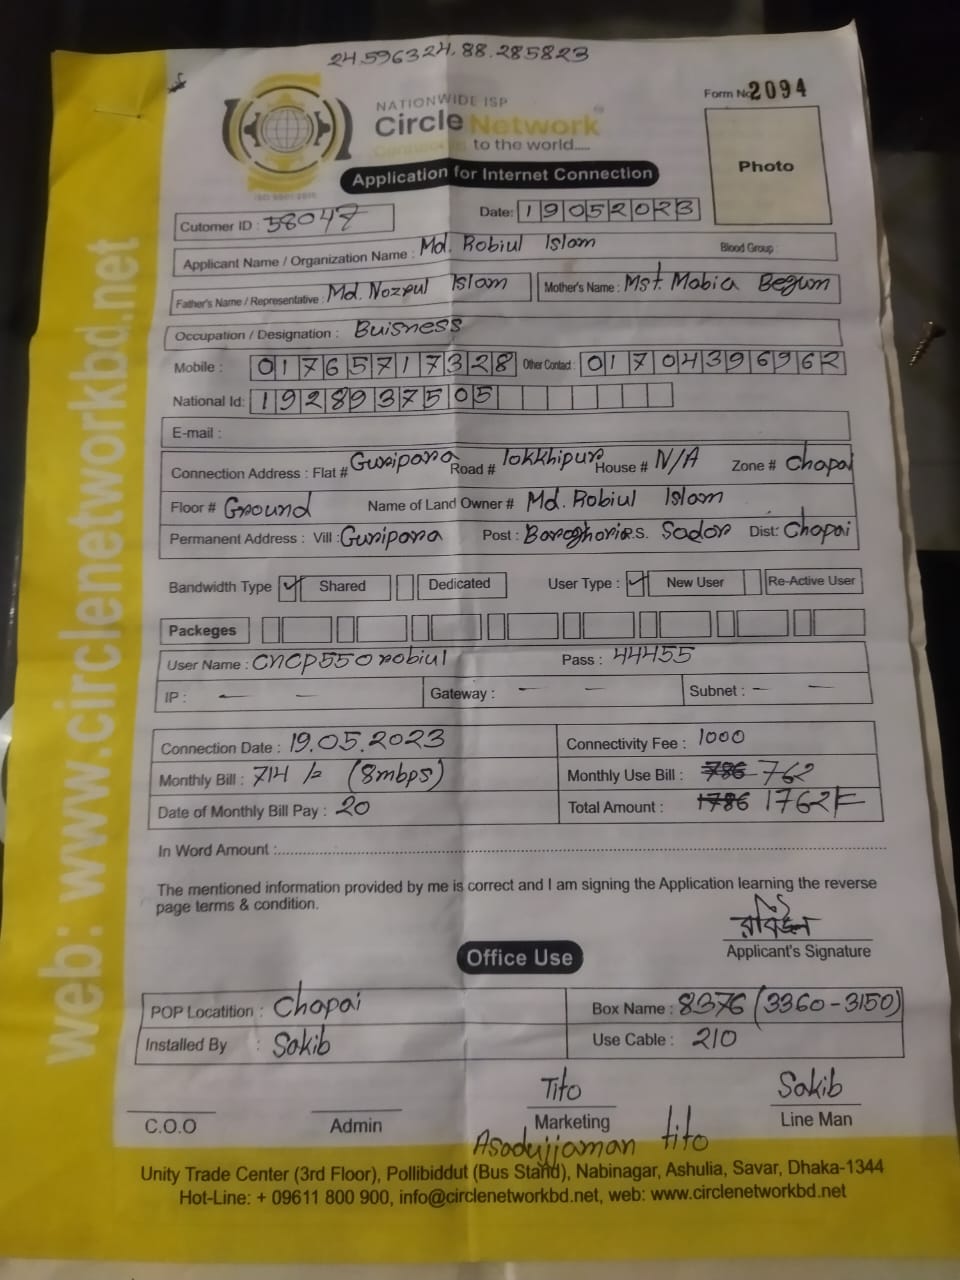 24.596324.88.285823
NATIONWIDE ISP
Circle Network
to the world.....
Form No 2094
Photo
Application for Internet Connection
Cutomer ID : 58047
Date: 19052023
Applicant Name / Organization Name : Md. Robiul Islam Blood Group :
Father's Name / Representative : Md. Nozrul Islam Mother's Name : Mst. Mabia Begum
Occupation / Designation : Buisness
Mobile : 01765717328 Other Contact : 01704396962
National Id: 1928937505
E-mail :
Connection Address : Flat # Guripara Road # lokkhipur House # N/A Zone # Chapai
Floor # Ground Name of Land Owner # Md. Robiul Islam
Permanent Address : Vill : Guripara Post : Baroghoria P.S. Sador Dist: Chapai
Bandwidth Type ✓ Shared Dedicated User Type : ✓ New User Re-Active User
Packeges
User Name : cncp550robiul Pass : 44455
IP : — — Gateway : — — Subnet : — —
Connection Date : 19.05.2023 Connectivity Fee : 1000
Monthly Bill : 714 /= (8mbps) Monthly Use Bill : 786 762
Date of Monthly Bill Pay : 20 Total Amount : 1786 1762/=
In Word Amount :
The mentioned information provided by me is correct and I am signing the Application learning the reverse
page terms & condition.
Applicant's Signature
Office Use
POP Locatition : Chapai Box Name : 8376 (3360-3150)
Installed By : Sakib Use Cable : 210
Tito Sakib
C.O.O Admin Marketing Line Man
Asadujjaman tito
Unity Trade Center (3rd Floor), Pollibiddut (Bus Stand), Nabinagar, Ashulia, Savar, Dhaka-1344
Hot-Line: + 09611 800 900, info@circlenetworkbd.net, web: www.circlenetworkbd.net
web: www.circlenetworkbd.net